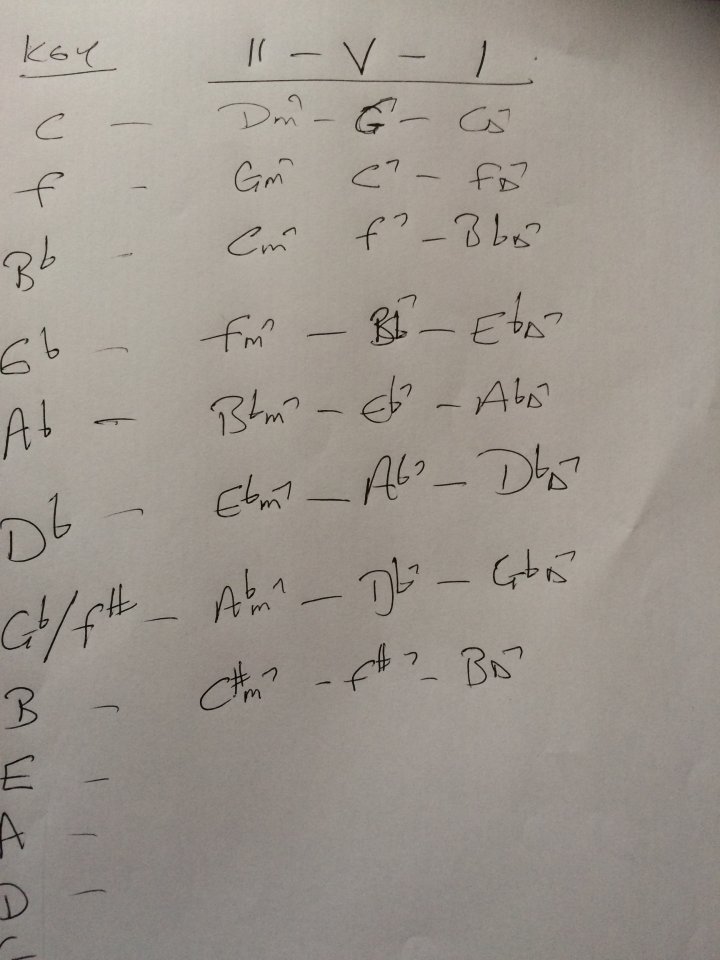 KEY II - V - I
C - Dm7 - G7 - C△7
F - Gm7 C7 - F△7
Bb - Cm7 F7 - Bb△7
Eb - Fm7 - Bb7 - Eb△7
Ab - Bbm7 - Eb7 - Ab△7
Db - Ebm7 - Ab7 - Db△7
Gb/F# - Abm7 - Db7 - Gb△7
B - C#m7 - F#7 - B△7
E -
A -
D -